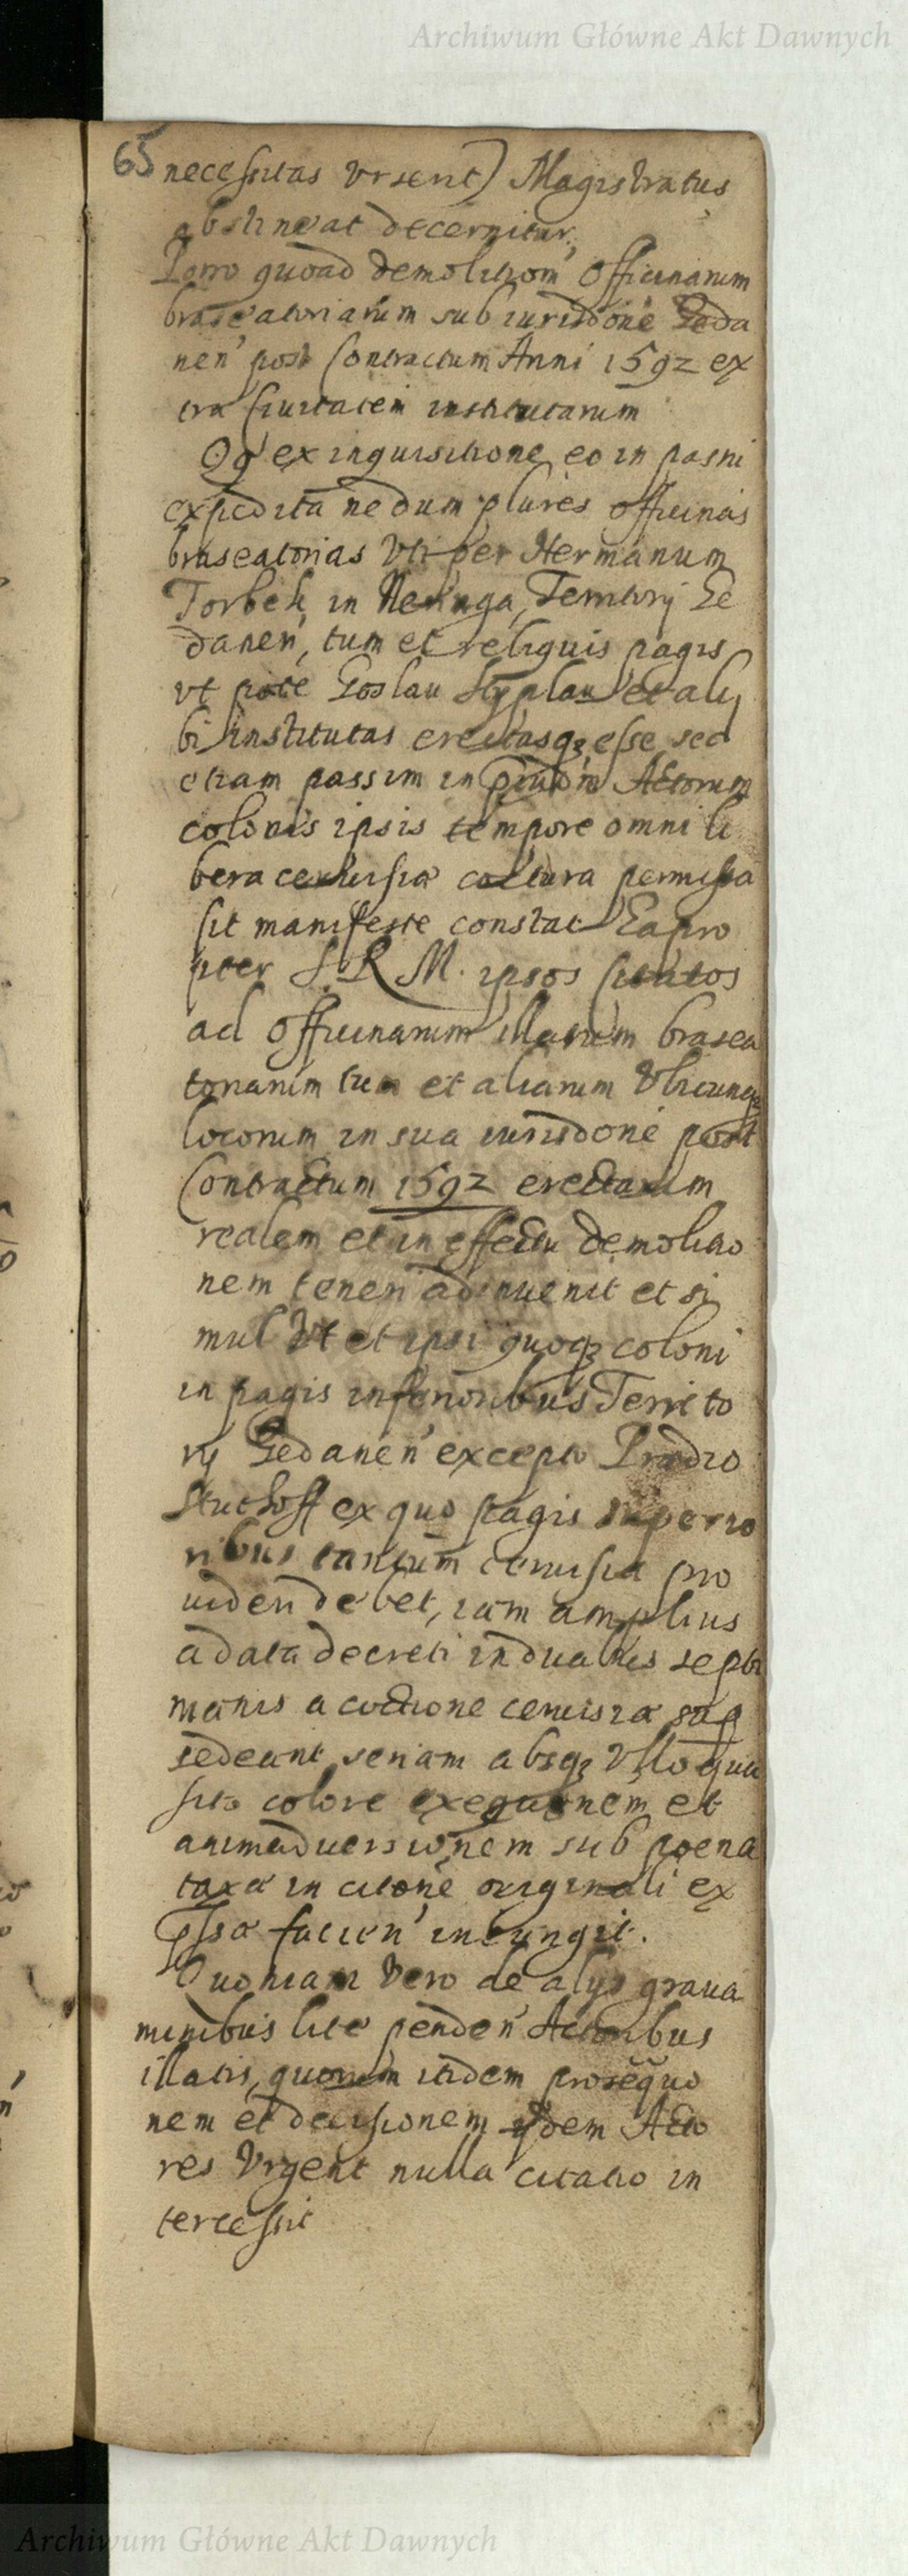 Archiwum Główne Akt Dawnych
65 necessitas vrsent) Magistratus
abstineat decernitur.
Porro quoad demolitiom officinarum
braseatoriarum sub iurisdone Geda
nen post Contractum Anni 1592 ex
tra Ciuitatem institutarum
Qd ex inquisitione eo in passu
expedita nedum plures officinas
braseatorias vti per Hermanum
Torbek in Neringa, Territorij Ge
danen, tum et reliquis pagis
vt pote Goslau Styplau et ali
bi institutas erectasq3 esse sed
etiam passim in Actorum
colonis ipsis tempore omni li
bera ceruisia coctura permissa
sit manifeste constat Eapro
pter S. R M. ipsos Citatos
ad officinarum illarum brasea
toriarum tum et aliarum Vbicunq3
locorum in sua iurisdone post
Contractum 1592 erectarum
realem et in effectu demolitio
nem teneri adinuenit et si
mul Vt et ipsi quoq3 coloni
in pagis inferioribus Territo
rij Gedanen excepto Prædio
Stuthoff ex quo pagis superio
ribus tantum ceruisia pro
uideri debet, iam amplius
a data decreti in duabus septi
manis a coctione ceruisiæ sup
sedeant, seriam absq3 Vllo quæ
sito colore exequonem et
animaduersionem sub poena
taxa in citone originali ex
pssa facien iniungit.
Quoniam Vero de alijs graua
minibus lite penden Actoribus
illatis, quorum itidem prosequo
nem et decisionem ijdem Acto
res Vrgent nulla citatio in
tercessit
Archiwum Główne Akt Dawnych